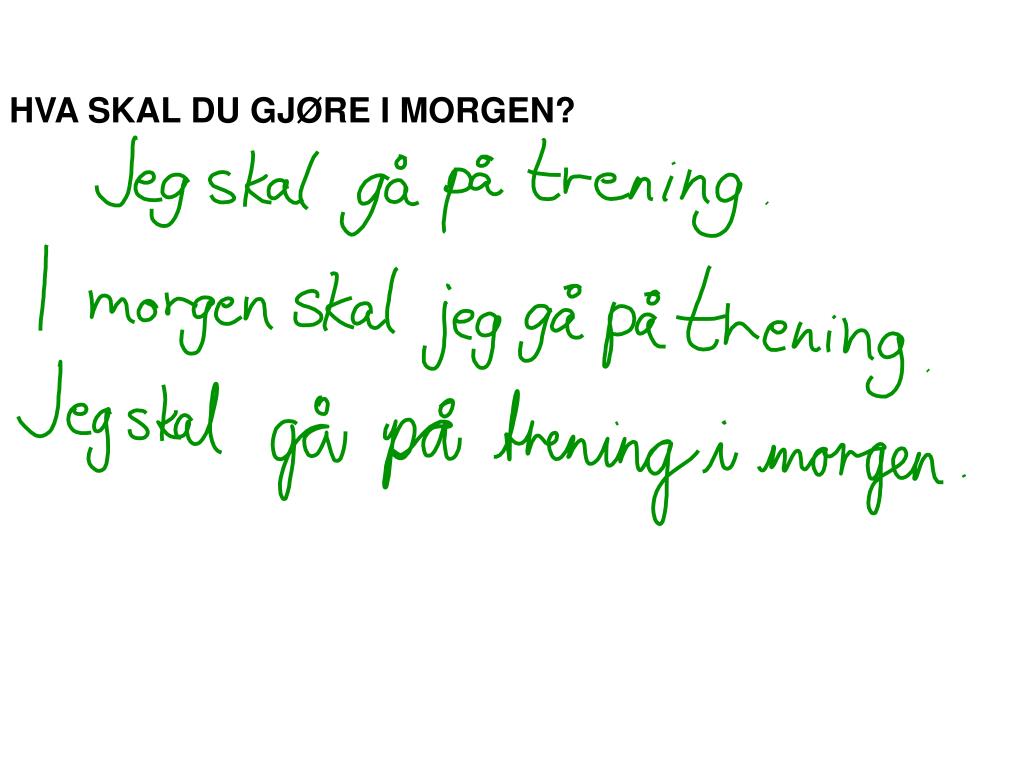 HVA SKAL DU GJØRE I MORGEN?
Jeg skal gå på trening.
I morgen skal jeg gå på trening.
Jeg skal gå på trening i morgen.